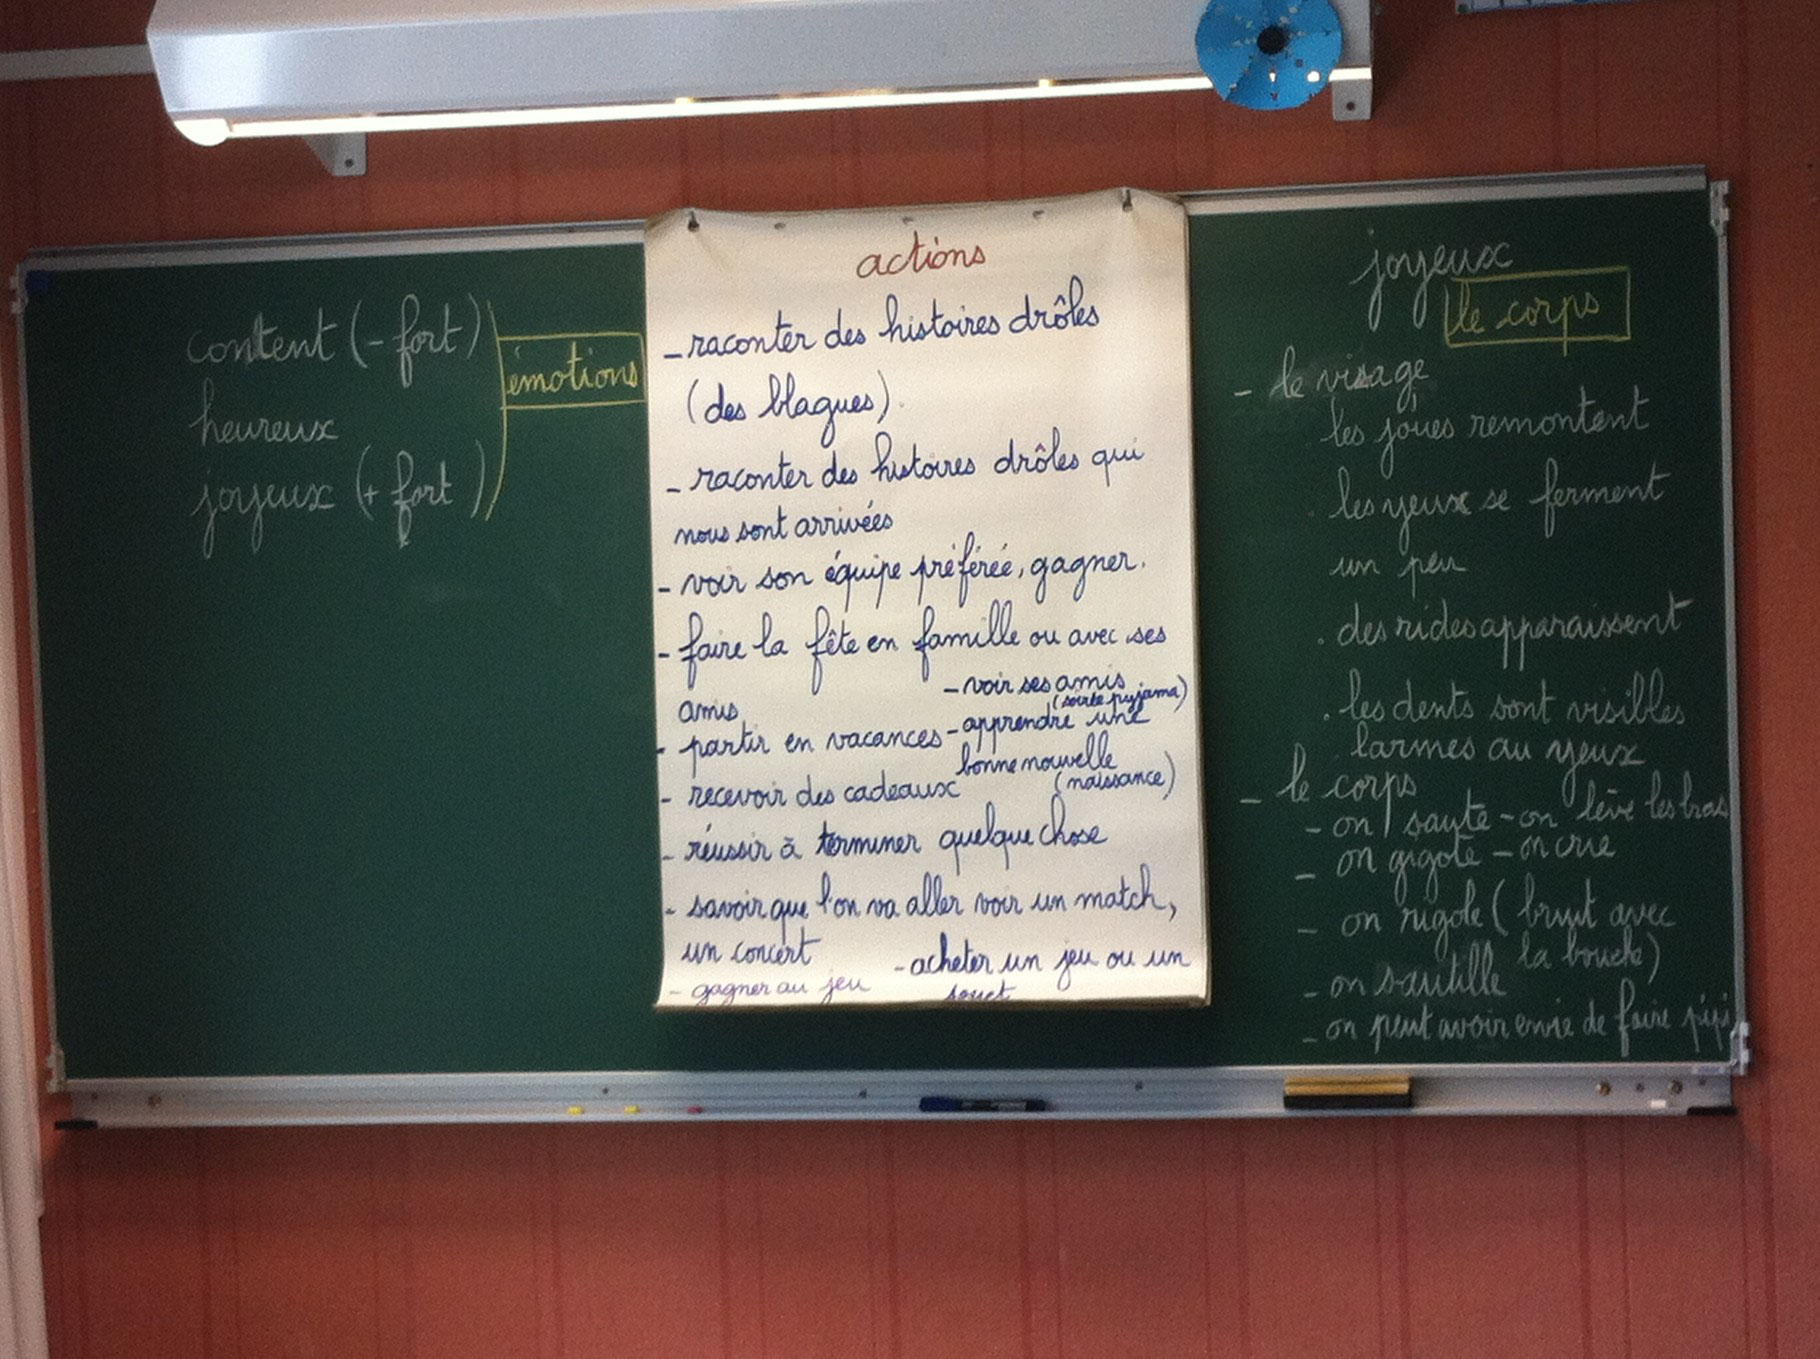 content (- fort)
heureux
joyeux (+ fort)
émotions
actions
- raconter des histoires drôles
(des blagues).
- raconter des histoires drôles qui
nous sont arrivées
- voir son équipe préférée, gagner.
- faire la fête en famille ou avec ses
amis
- voir ses amis
(soirée pyjama)
- partir en vacances
- apprendre une
bonne nouvelle
(naissance)
- recevoir des cadeaux
- réussir à terminer quelque chose
- savoir que l'on va aller voir un match,
un concert
- acheter un jeu ou un
jouet
- gagner au jeu
joyeux
le corps
- le visage
les joues remontent
. les yeux se ferment
un peu
. des rides apparaissent
. les dents sont visibles
larmes au yeux
- le corps
- on saute - on lève les bras
- on gigote - on crie
- on rigole (bruit avec
la bouche)
- on sautille
- on peut avoir envie de faire pipi